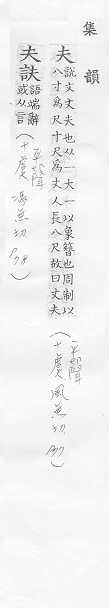 集韻
夫
說文丈夫也从一大一以象簪也周制以
八寸爲尺十尺爲丈人長八尺故曰丈夫
(平聲
十虞 風無切
夫
語端辭
或从言
(平聲
十虞 馮無切